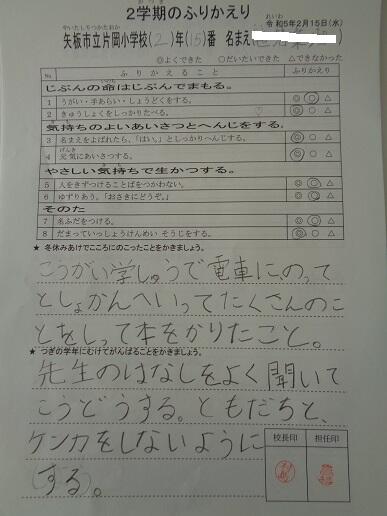 2学期のふりかえり
令和5年2月15日(水)
矢板市立片岡小学校(2)年(15)番 名まえ
◎よくできた ○だいたいできた △できなかった
No ふりかえること ふりかえり
じぶんの命はじぶんでまもる。
1 うがい・手あらい・しょうどくをする。 ◎ ○ △
2 きゅうしょくをしっかりたべる。 ◎ ○ △
気持ちのよいあいさつとへんじをする。
3 名まえをよばれたら、「はい。」としっかりへんじする。 ◎ ○ △
4 元気にあいさつする。 ◎ ○ △
やさしい気持ちで生かつする。
5 人をきずつけることばをつかわない。 ◎ ○ △
6 ゆずりあう。「おさきにどうぞ。」 ◎ ○ △
そのた
7 名ふだをつける。 ◎ ○ △
8 だまっていっしょうけんめい そうじをする。 ◎ ○ △
★ 冬休みあけでこころにのこったことをかきましょう。
こうがい学しゅうで電車に、のって
としょかんへいってたくさんのこ
とをしって本をかりたこと。
★ つぎの学年にむけてがんばることをかきましょう。
先生のはなしをよく聞いて
こうどうする。ともだちと、
ケンカをしないように
する。
校長印 担任印